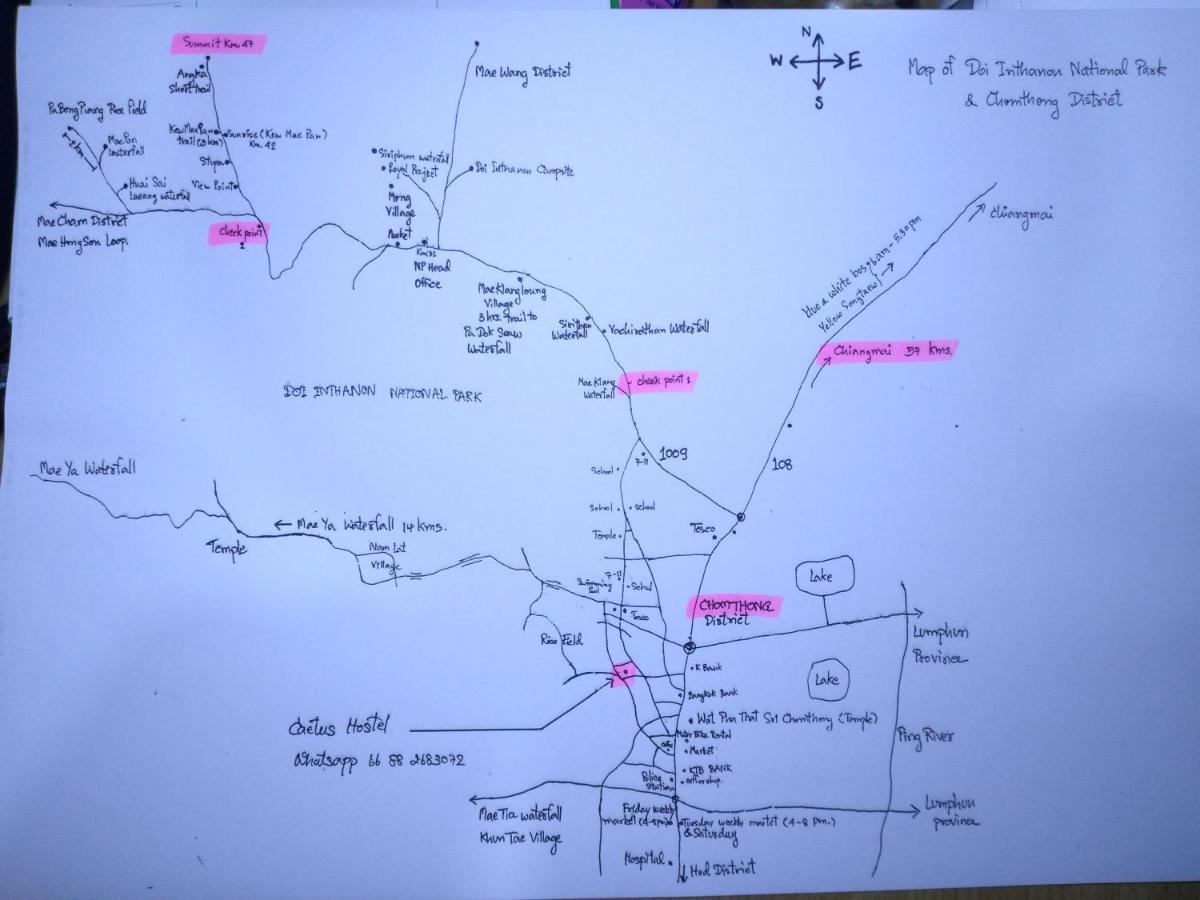 Map of Doi Inthanon National Park
& Chomthong District
N
W
E
S
Summit Km. 47
Angka
Short trail
Mae Wang District
Pa Bong Piang Rice Field
2 km
Mae Pan
waterfall
Kew Mae Pan
trail (3 km)
Sunrise (Kew Mae Pan)
Km. 42
Stupa
View Point
Huai Sai
Lueang waterfal
Mae Cham District
Mae Hong Son Loop.
Check point
2
Siriphum waterfal
Royal Project
Doi Inthanon Campsite
Mong
Village
Market
Km 31
NP Head
Office
Mae Klang loung
Village
3 hrs. trail to
Pa Dok Seaw
Waterfall
Sirithan
Waterfall
Vachirathan Waterfall
Mae Klang
Waterfall
check point 1
Chiangmai
Blue & white bus 6 am - 5.30 pm
Yellow Songtaew
Chiangmai 57 kms.
DOI INTHANON NATIONAL PARK
1009
7-11
108
School
School
School
Temple
Tesco
Mae Ya Waterfall
← Mae Ya Waterfall 14 kms.
Temple
Nam Lat
Village
7-11
Swimming
Pool
School
Tesco
Lake
CHOMTHONG
District
Lumphun
Province
Rice Field
K Bank
Lake
Bangkok Bank
Cactus Hostel
Whatsapp 66 88 2683072
Wat Pha That Sri Chomthong (Temple)
Motor Bike Rental
Market
Ping River
KTB BANK
Police
Station
Mae Tia waterfall
Khun Tae Village
Friday weekly
market (4-8pm)
Tuesday weekly market (4-8 Pm.)
& Saturday
Lumphun
province
Hospital
Hod District